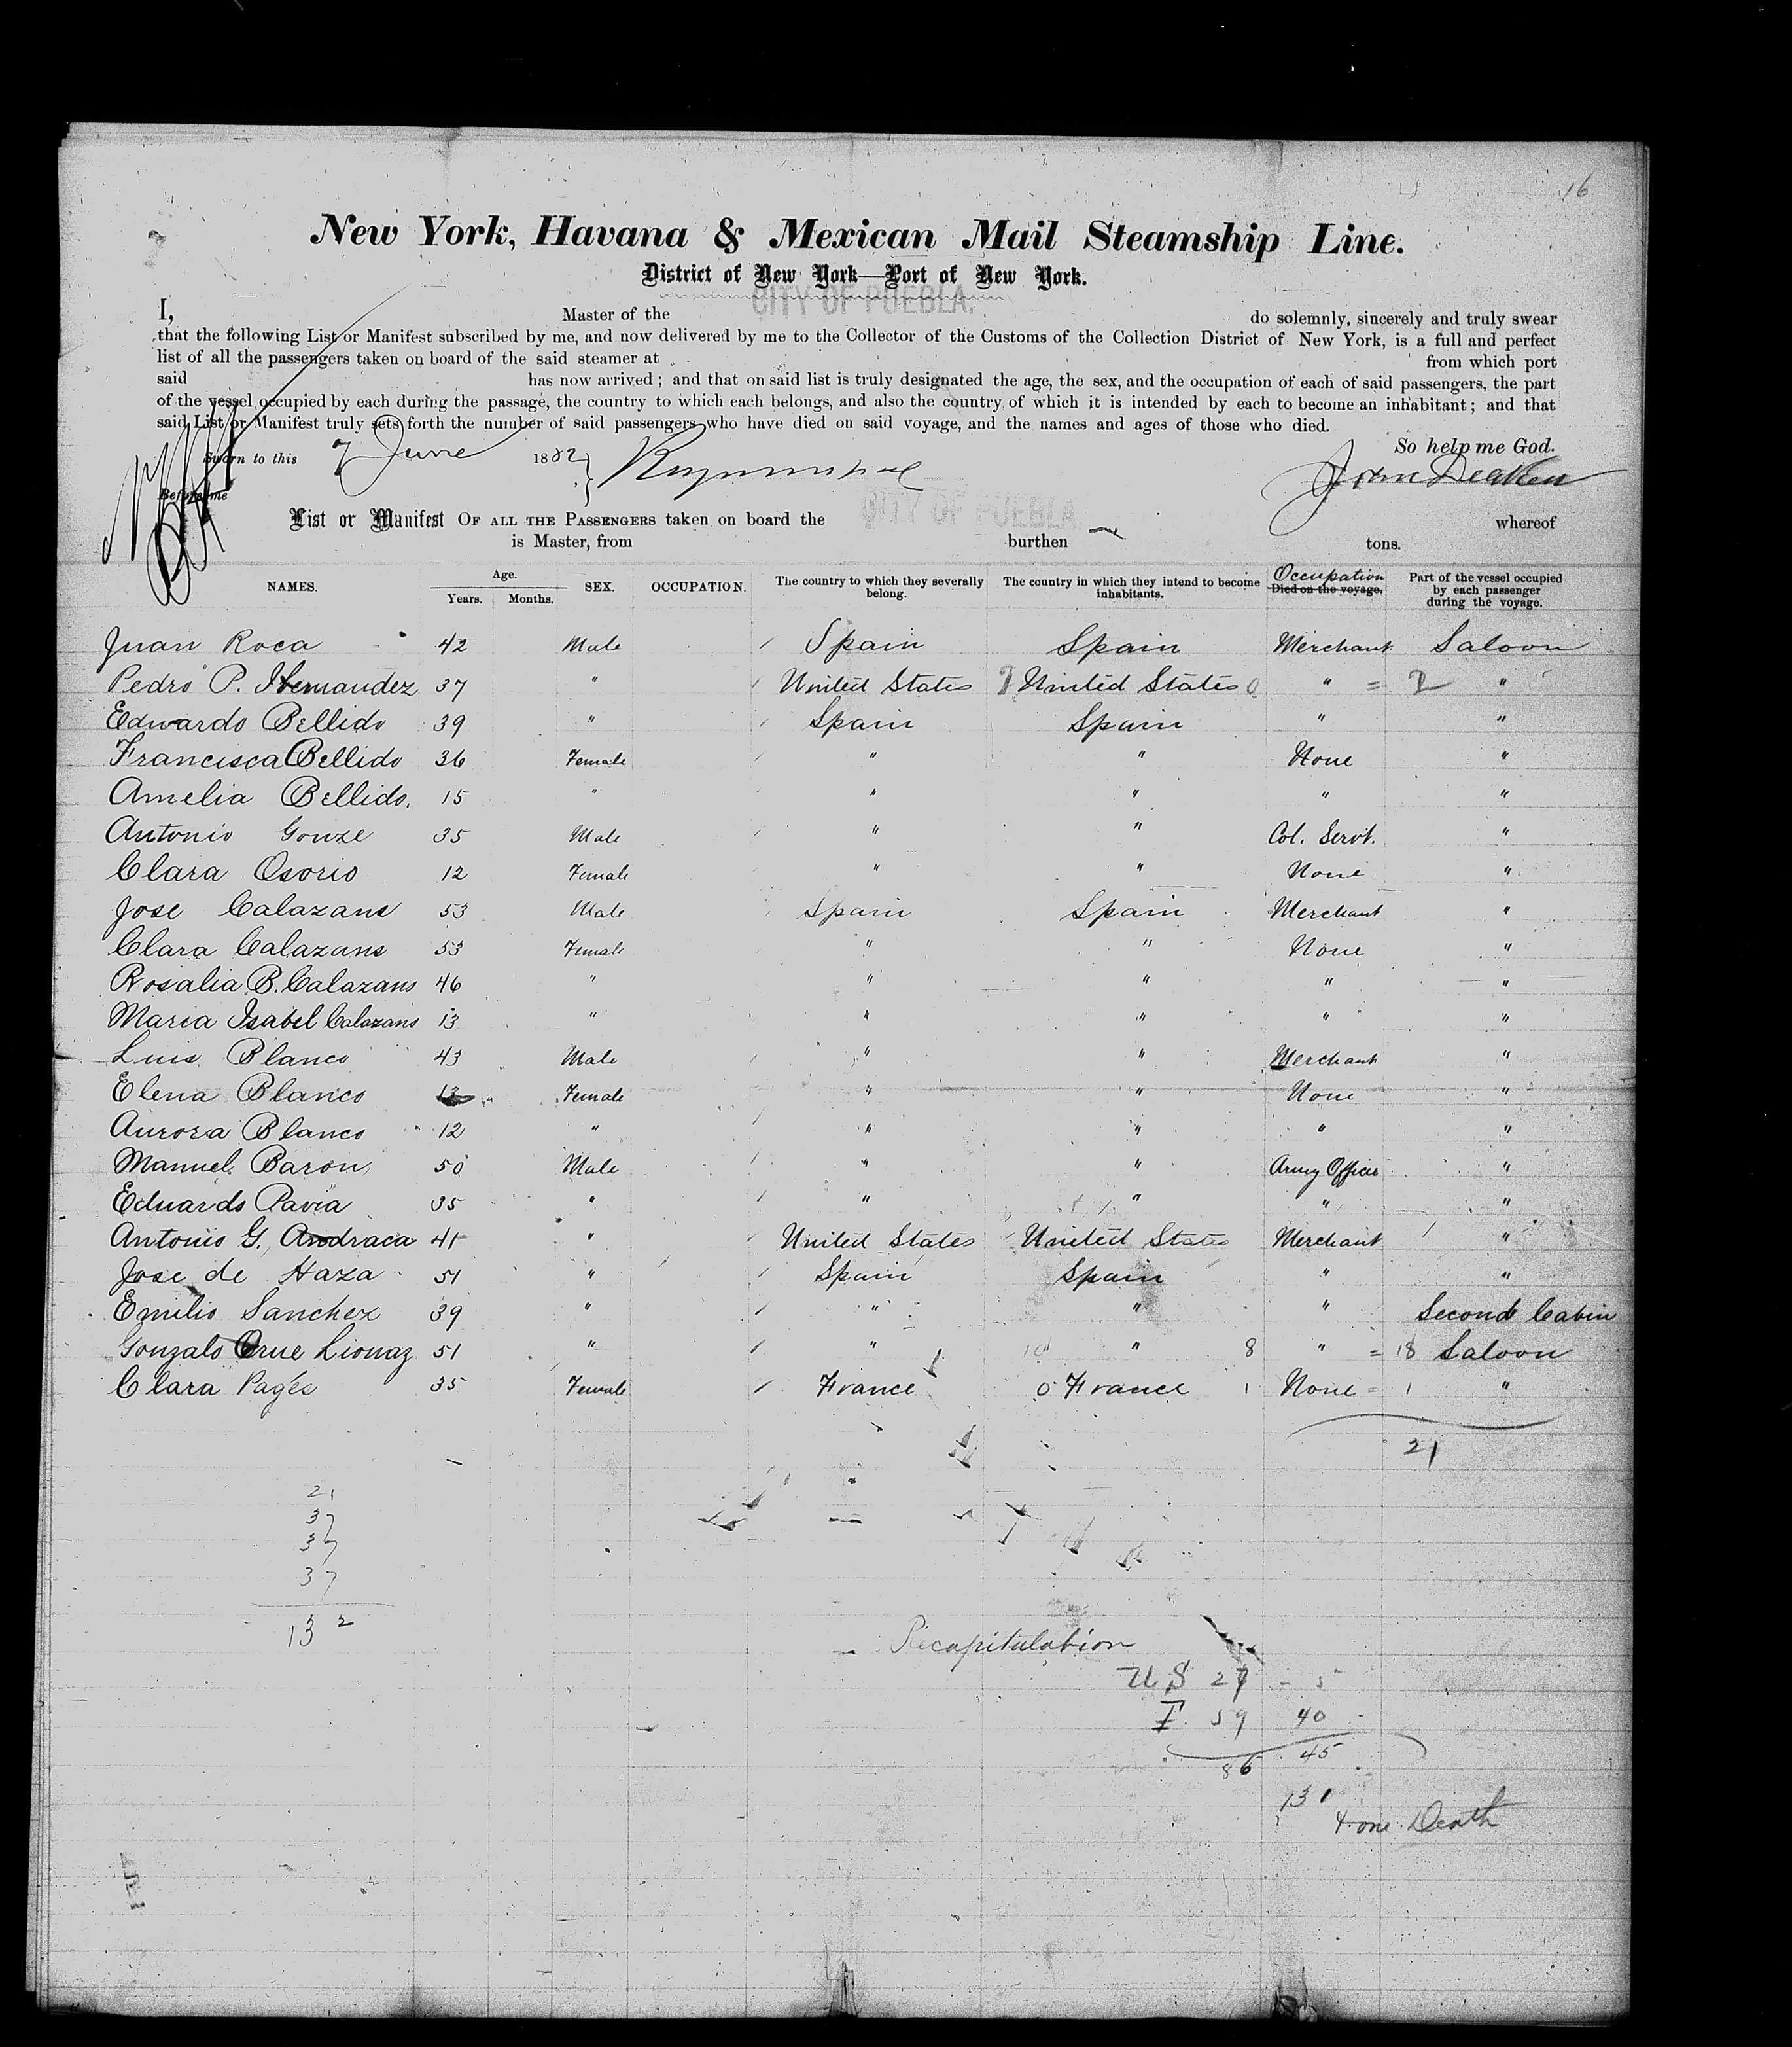 16
New York, Havana & Mexican Mail Steamship Line.
District of New York—Port of New York.
CITY OF PUEBLA.
I, Master of the do solemnly, sincerely and truly swear
that the following List or Manifest subscribed by me, and now delivered by me to the Collector of the Customs of the Collection District of New York, is a full and perfect
list of all the passengers taken on board of the said steamer at from which port
said has now arrived; and that on said list is truly designated the age, the sex, and the occupation of each of said passengers, the part
of the vessel occupied by each during the passage, the country to which each belongs, and also the country of which it is intended by each to become an inhabitant; and that
said List or Manifest truly sets forth the number of said passengers who have died on said voyage, and the names and ages of those who died.
So help me God.
Sworn to this 7 June 1882
John Deaken
Before me
CITY OF PUEBLA
List or Manifest OF ALL THE PASSENGERS taken on board the whereof
is Master, from burthen tons.
NAMES. Age. Years. Months. SEX. OCCUPATION. The country to which they severally belong. The country in which they intend to become inhabitants. Occupation Died on the voyage. Part of the vessel occupied by each passenger during the voyage.
Juan Roca 42 Male Spain Spain Merchant Saloon
Pedro P. Hernandez 37 " United States United States 0 " = 2 "
Edwardo Bellido 39 " Spain Spain " "
Francisca Bellido 36 Female " " None "
Amelia Bellido. 15 " " " " "
Antonio Gonze 35 Male " " Col. Servt. "
Clara Osorio 12 Female " " None "
Jose Calazans 53 Male Spain Spain Merchant "
Clara Calazans 53 Female " " None "
Rosalia B. Calazans 46 " " " " "
Maria Isabel Calazans 13 " " " " "
Luis Blanco 43 Male " " Merchant "
Elena Blanco Female " " None "
Aurora Blanco 12 " " " " "
Manuel Baron 50 Male " " Army Officer "
Eduardo Pavia 35 " " " " "
Antonio G. Andraca 41 " United States United States Merchant "
Jose de Haza 51 " Spain Spain " "
Emilio Sanchez 39 " " " " Second Cabin
Gonzalo Crue 51 " " 10 " 8 " = 18 Saloon
Clara Pagés 35 Female France 0 France 1 None = 1 "
21
21
37
37
37
132
Recapitulation
US 27 - 5
F. 59 40
86 45
131
& one Death